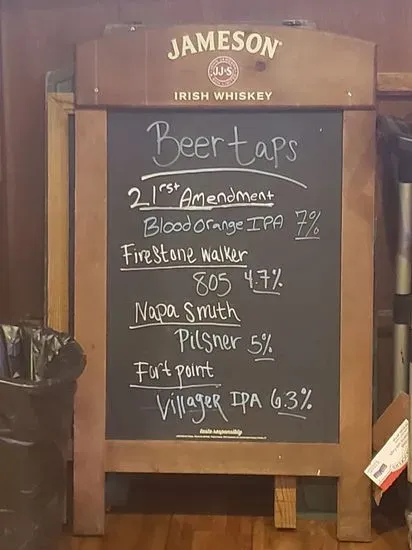 JAMESON
JJ&S
IRISH WHISKEY
Beer taps
21rst Amendment
Blood Orange IPA 7%
Firestone Walker
805 4.7%
Napa Smith
Pilsner 5%
Fort point
Villager IPA 6.3%
taste responsibly